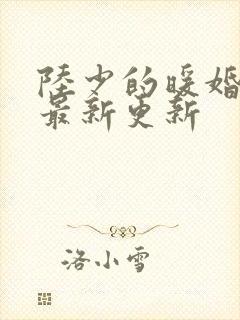 陸少的暖婚
最新更新
洛小雪